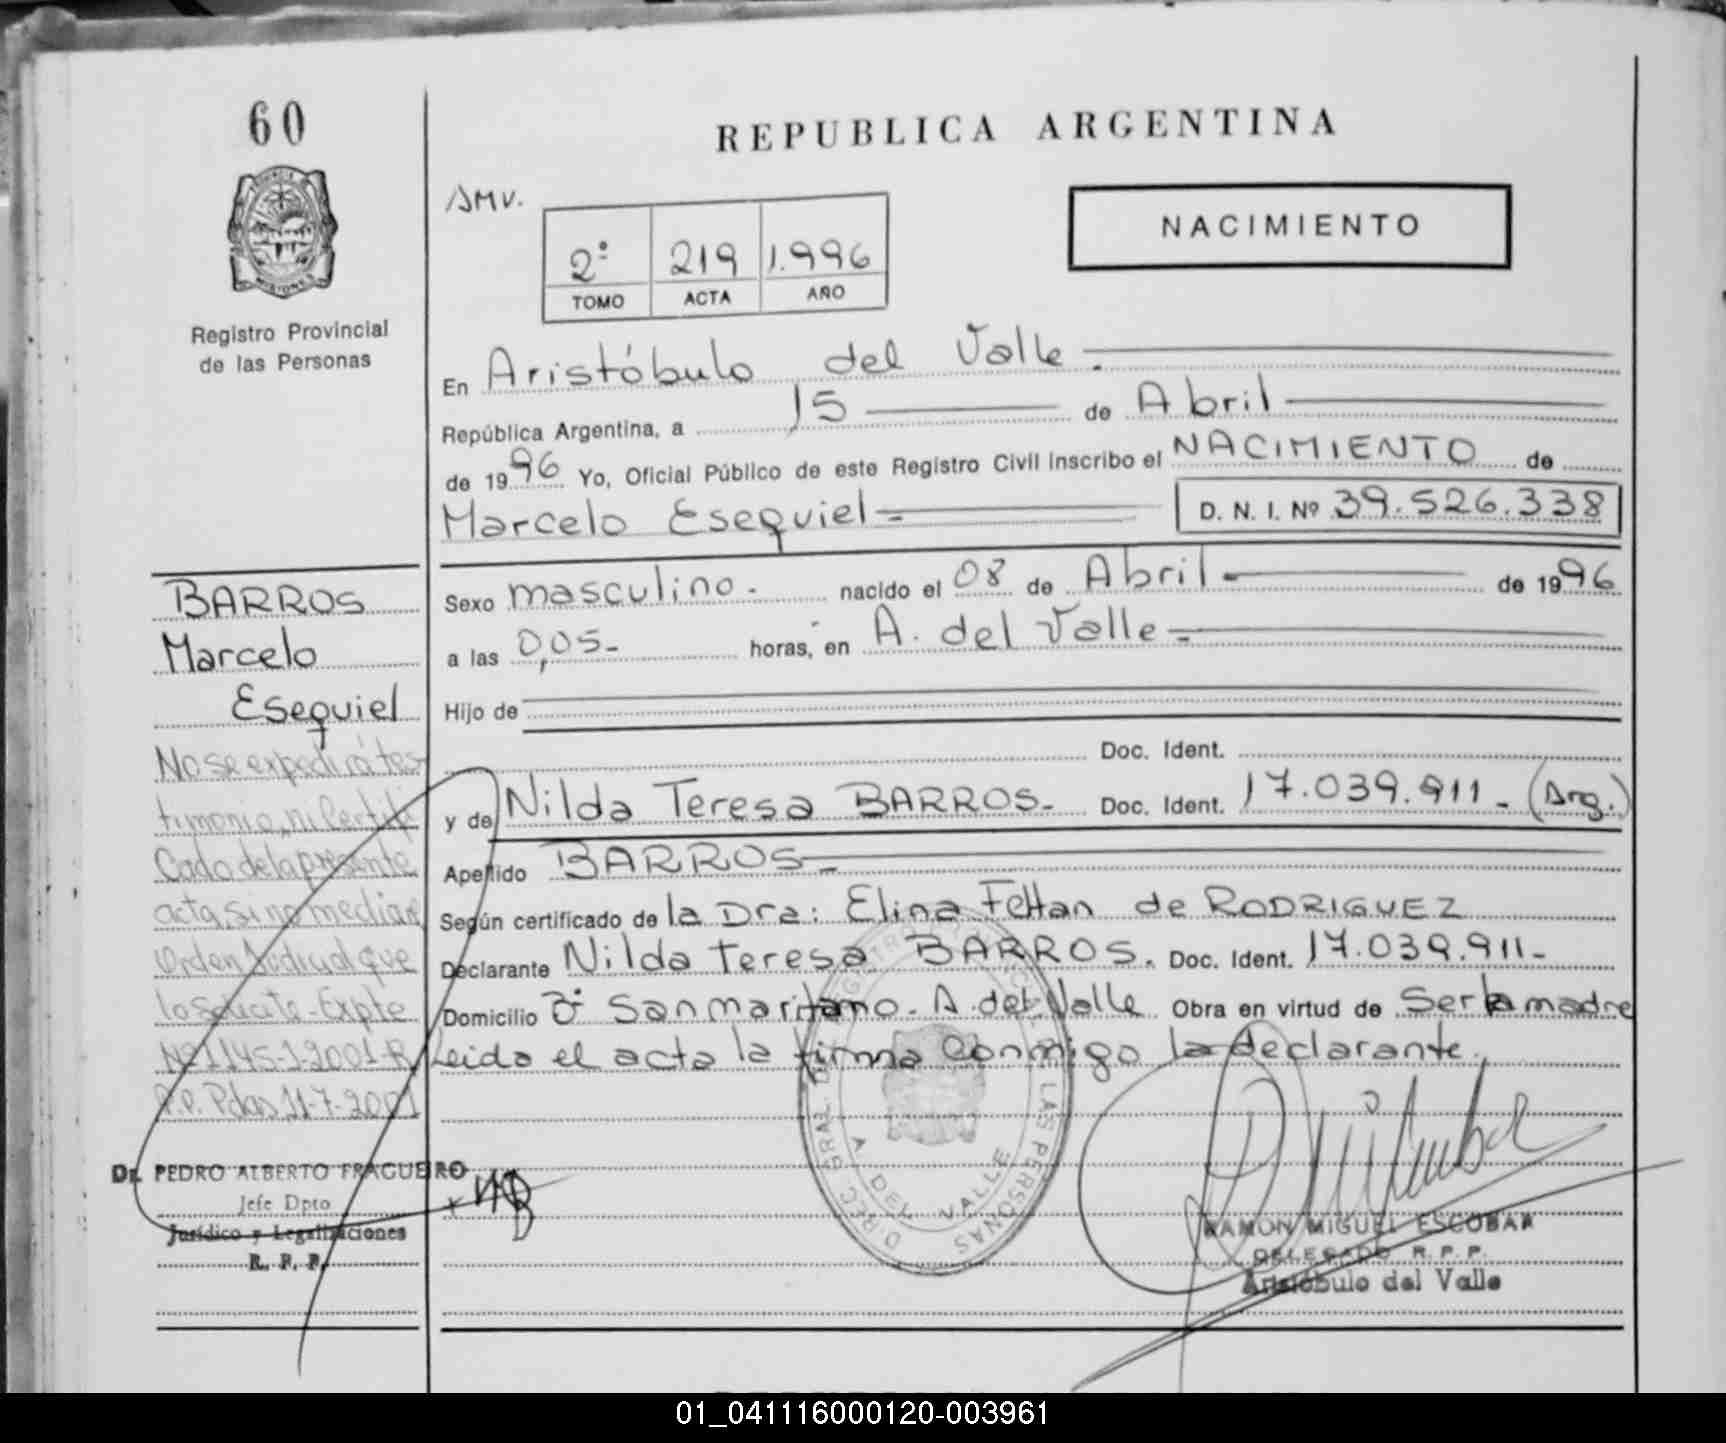 60
REPUBLICA ARGENTINA
Registro Provincial
de las Personas
AMV.
2º 219 1.996
TOMO ACTA AÑO
NACIMIENTO
En Aristóbulo del Valle.
República Argentina, a 15 de Abril
de 1996 Yo, Oficial Público de este Registro Civil inscribo el NACIMIENTO de
Marcelo Esequiel D. N. I. Nº 39.526.338
Sexo masculino. nacido el 08 de Abril de 1996
a las 0,05 horas, en A. del Valle
Hijo de
Doc. Ident.
y de Nilda Teresa BARROS. Doc. Ident. 17.039.911 (Arg.)
Apellido BARROS
Según certificado de la Dra: Elina Fettan de RODRIGUEZ
Declarante Nilda Teresa BARROS. Doc. Ident. 17.039.911
Domicilio Bº San maritano. A. del Valle Obra en virtud de Ser la madre
Leida el acta la firma Conmigo la declarante.
BARROS
Marcelo
Esequiel
No se expedirá tes
timonio, ni Certifi
Cado de la presente
acta, si no median
Orden Judicial que
lo Solicite - Expte
Nº 1145-J-2001-R
P.P. Pdas, 11-7-2001
Dr. PEDRO ALBERTO FRAGUEIRO
Jefe Dpto
Jurídico y Legalizaciones
R. P. P.
DIREC. GRAL. DEL REGISTRO LAS PERSONAS
A DEL VALLE
RAMON MIGUEL ESCOBAR
DELEGADO R. P. P.
Aristóbulo del Valle
01_041116000120-003961